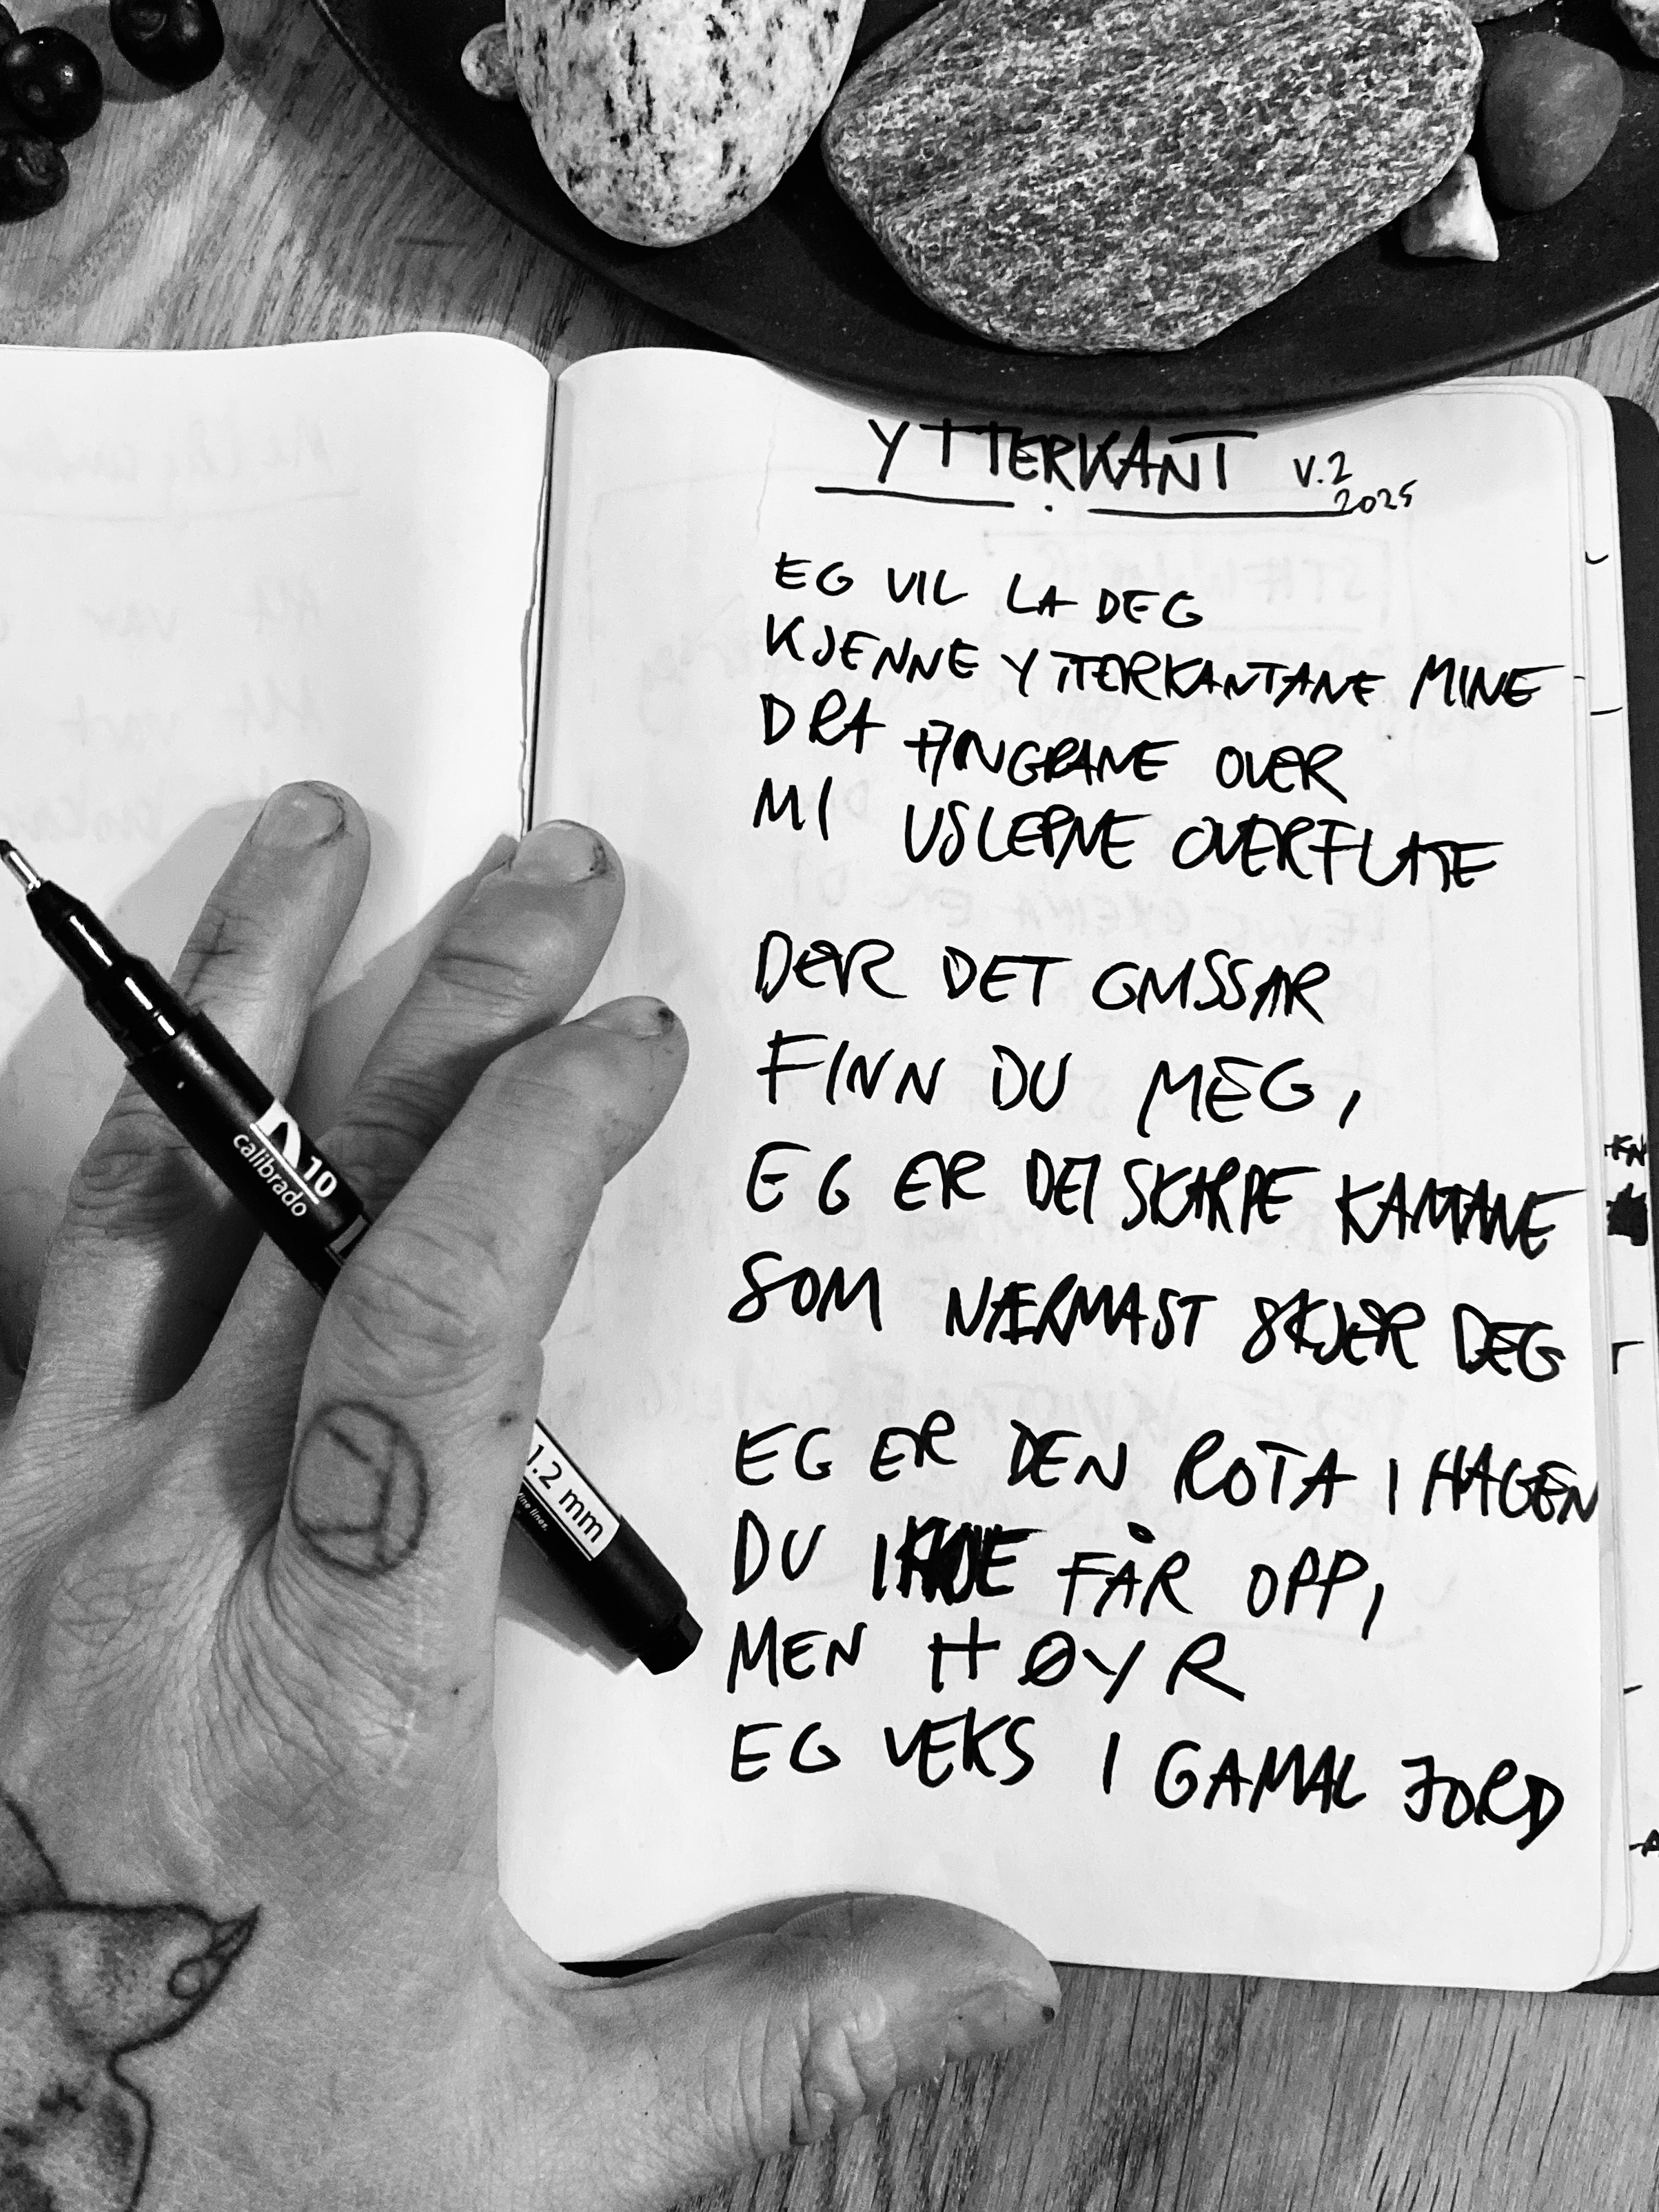 YTTERKANT V.2
2025
EG VIL LA DEG
KJENNE YTTERKANTANE MINE
DRA FINGRANE OVER
MI USLEPNE OVERFLATE
DER DET GNISSAR
FINN DU MEG,
EG ER DEI SKARPE KANTANE
SOM NÆRMAST SKJER DEG
EG ER DEN ROTA I HAGEN
DU IKKJE FÅR OPP,
MEN HØYR
EG VEKS I GAMAL JORD
10
calibrado
1.2 mm
fine lines.
KN